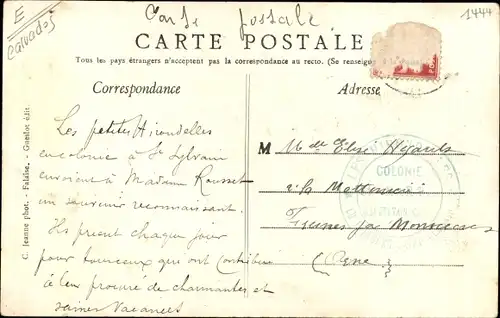 E
Calvados
Carte postale
1444
CARTE POSTALE
Tous les pays étrangers n'acceptent pas la correspondance au recto. (Se renseigner à la
Correspondance
Adresse
Les petites Hirondelles
en colonie à St Sylvain
envoient à Madame Rousset
un souvenir reconnaissant.
Ils prient chaque jour
pour tous ceux qui ont contribué
à leur procurer de charmantes et
saines vacances
M
Elise
COLONIE
par
(Orne)
C. Jeanne phot. - Falaise. - Gandot édit.